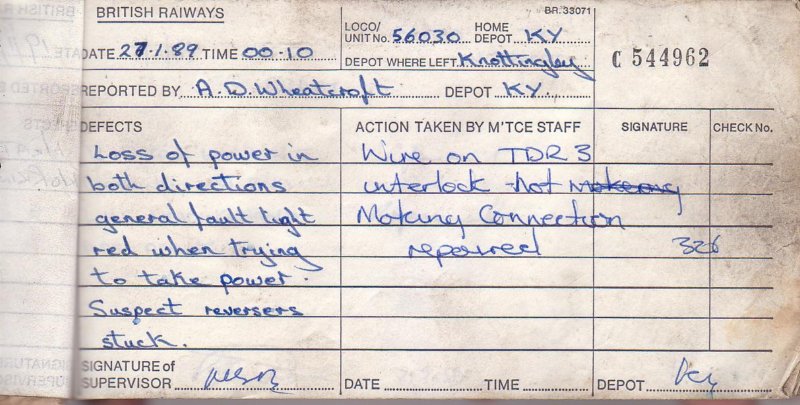 BRITISH RAIWAYS
BR. 33071
DATE 27.1.89 TIME 00.10
LOCO/ UNIT No. 56030 HOME DEPOT KY
DEPOT WHERE LEFT Knottingley
C 544962
REPORTED BY A. D. Wheatcroft DEPOT KY.
DEFECTS
ACTION TAKEN BY M'TCE STAFF
SIGNATURE
CHECK No.
Loss of power in
both directions
general fault light
red when trying
to take power.
Suspect reversers
stuck.
Wire on TDR 3
interlock not
Making Connection
repaired
326
SIGNATURE of SUPERVISOR
DATE TIME DEPOT Ky